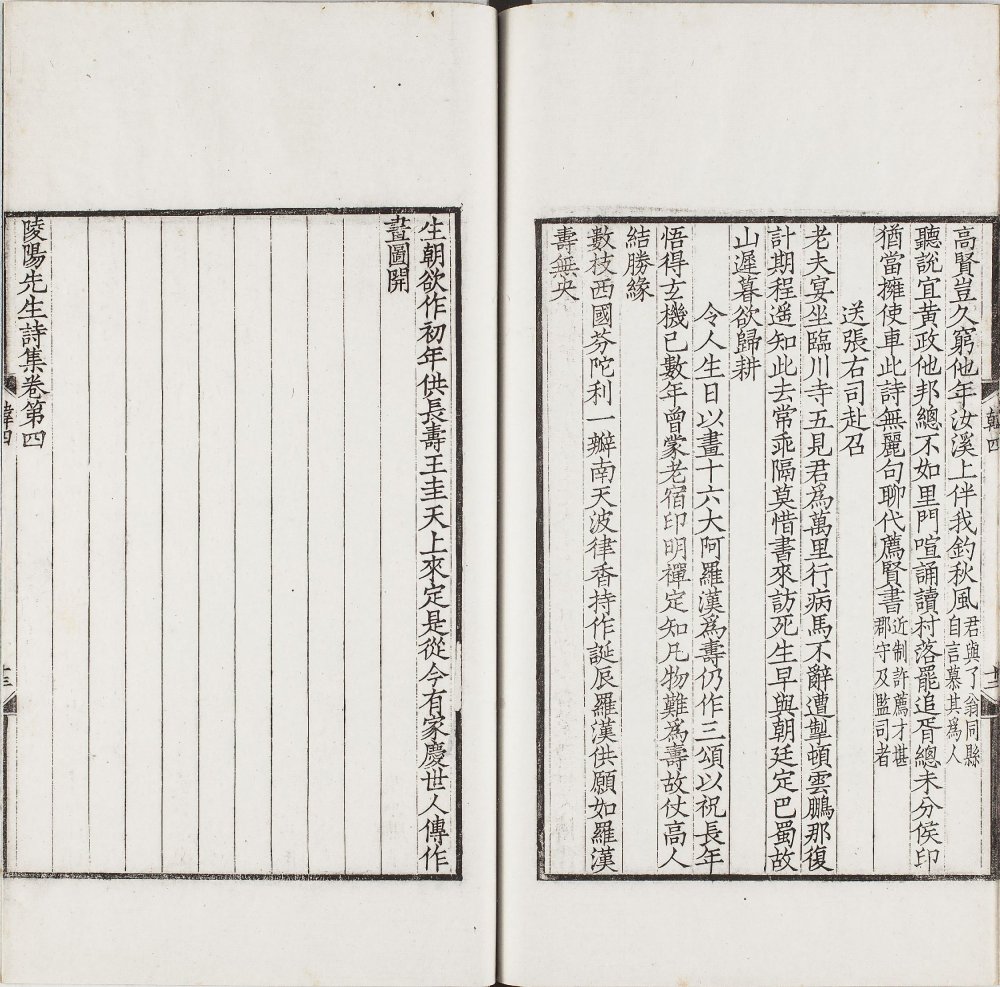 高賢豈久窮他年汝溪上伴我釣秋風君與了翁同縣自言慕其爲人
聽說宜黃政他邦總不如里門喧誦讀村落罷追胥總未分侯印
猶當擁使車此詩無麗句聊代薦賢書近制許薦才堪郡守及監司者
送張右司赴召
老夫宴坐臨川寺五見君爲萬里行病馬不辭遭掣頓雲鵬那復
計期程遥知此去常乖隔莫惜書來訪死生早與朝廷定巴蜀故
山遲暮欲歸耕
令人生日以畫十六大阿羅漢爲壽仍作三頌以祝長年
悟得玄機已數年曾蒙老宿印明禪定知凡物難爲壽故仗高人
結勝緣
數枝西國芬陀利一瓣南天波律香持作誕辰羅漢供願如羅漢
壽無央
生朝欲作初年供長壽王圭天上來定是從今有家慶世人傳作
畫圖開
陵陽先生詩集卷第四
十二
韓四
十三